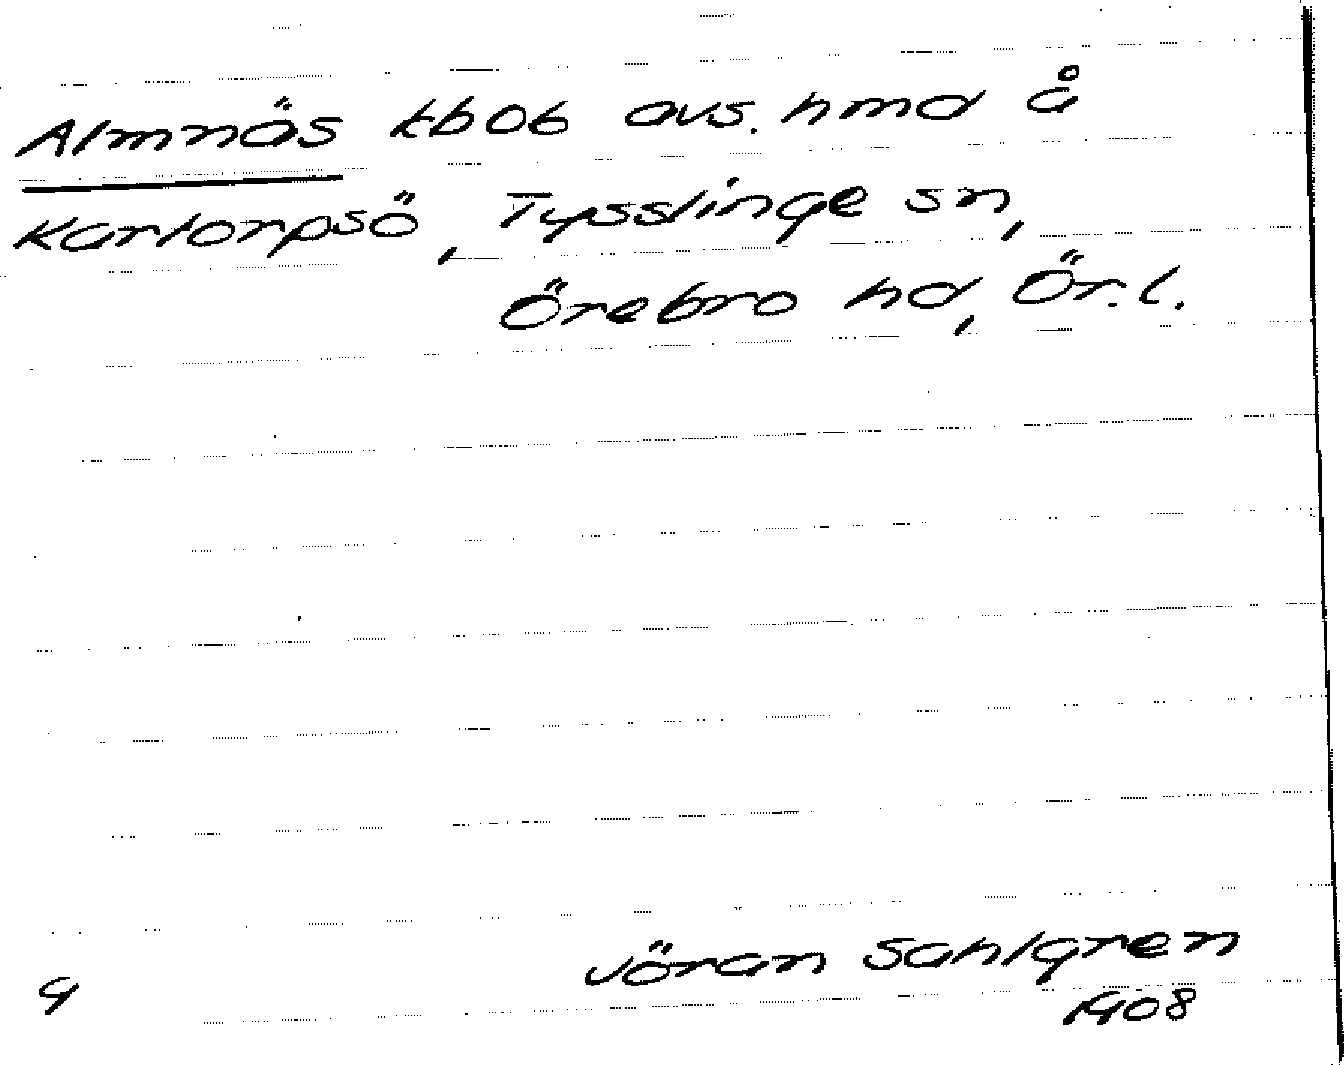 Almnäs tb06 avs. hmd å
Karlorpsö, Tysslinge sn,
Örebro hd, Ör.l.
Jöran Sahlgren
9
1908